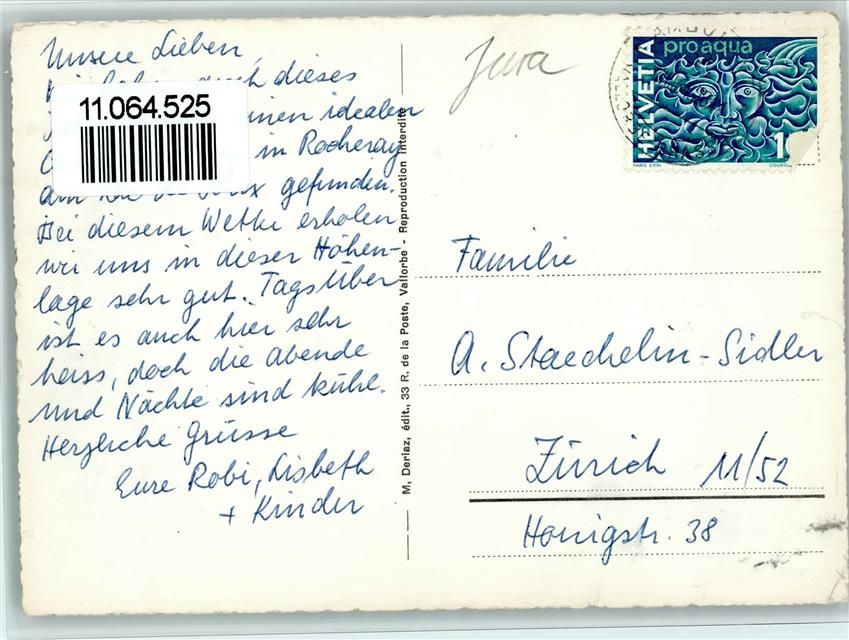 Unsere Lieben,
auch dieses
11.064.525
einen idealen
in Rocheray
gefunden.
Bei diesem Wetter erholen
wir uns in dieser Höhen-
lage sehr gut. Tagsüber
ist es auch hier sehr
heiss, doch die Abende
und Nächte sind kühl.
Herzliche Grüsse
Eure Robi, Lisbeth
+ Kinder
M. Derlaz, édit., 33 R. de la Poste, Vallorbe - Reproduction Interdite
Jura
HELVETIA
pro aqua
HANS ERNI
Familie
A. Staechelin-Sidler
Zürich 11/52
Honigstr. 38